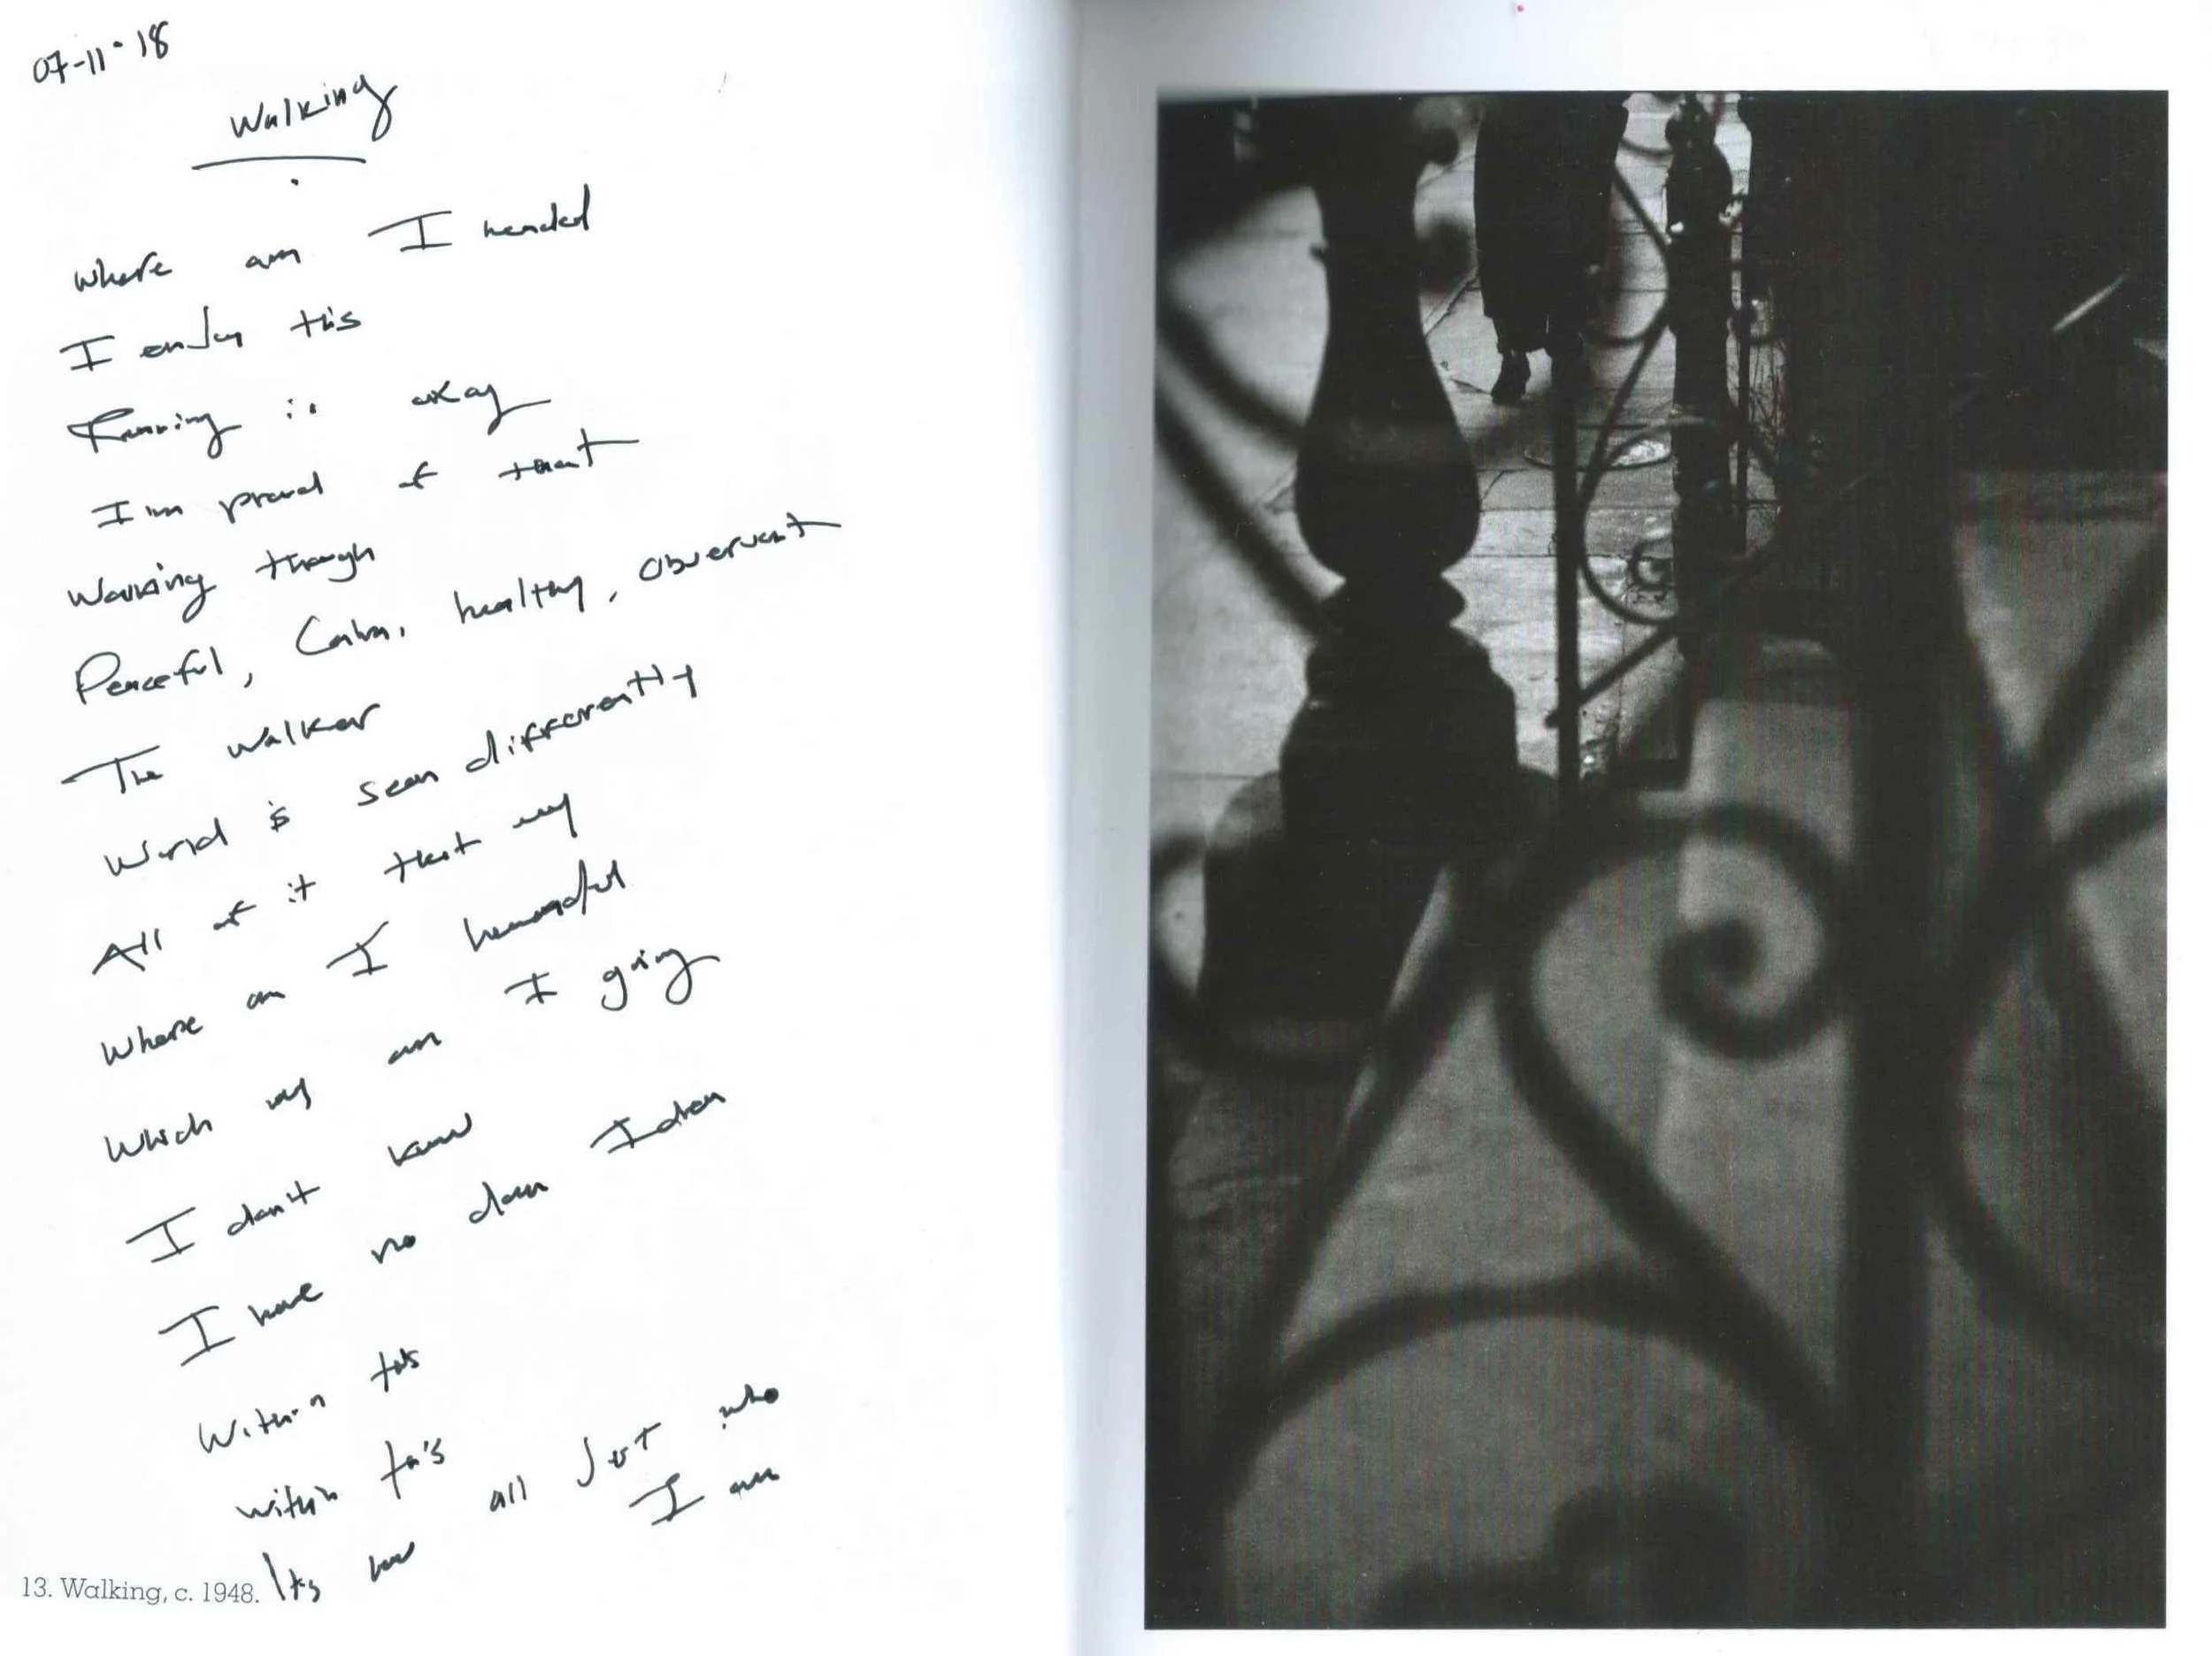 07-11-18
Walking
Where am I headed
I enjoy this
Running is okay
I'm proud of that
Walking though
Peaceful, Calm, healthy, observant
The walker
World is seen differently
All of it that way
Where am I
Which way am I going
I don't know
I have no damn Idea
Within this
within this
Its all Just who
I am
13. Walking, c. 1948.